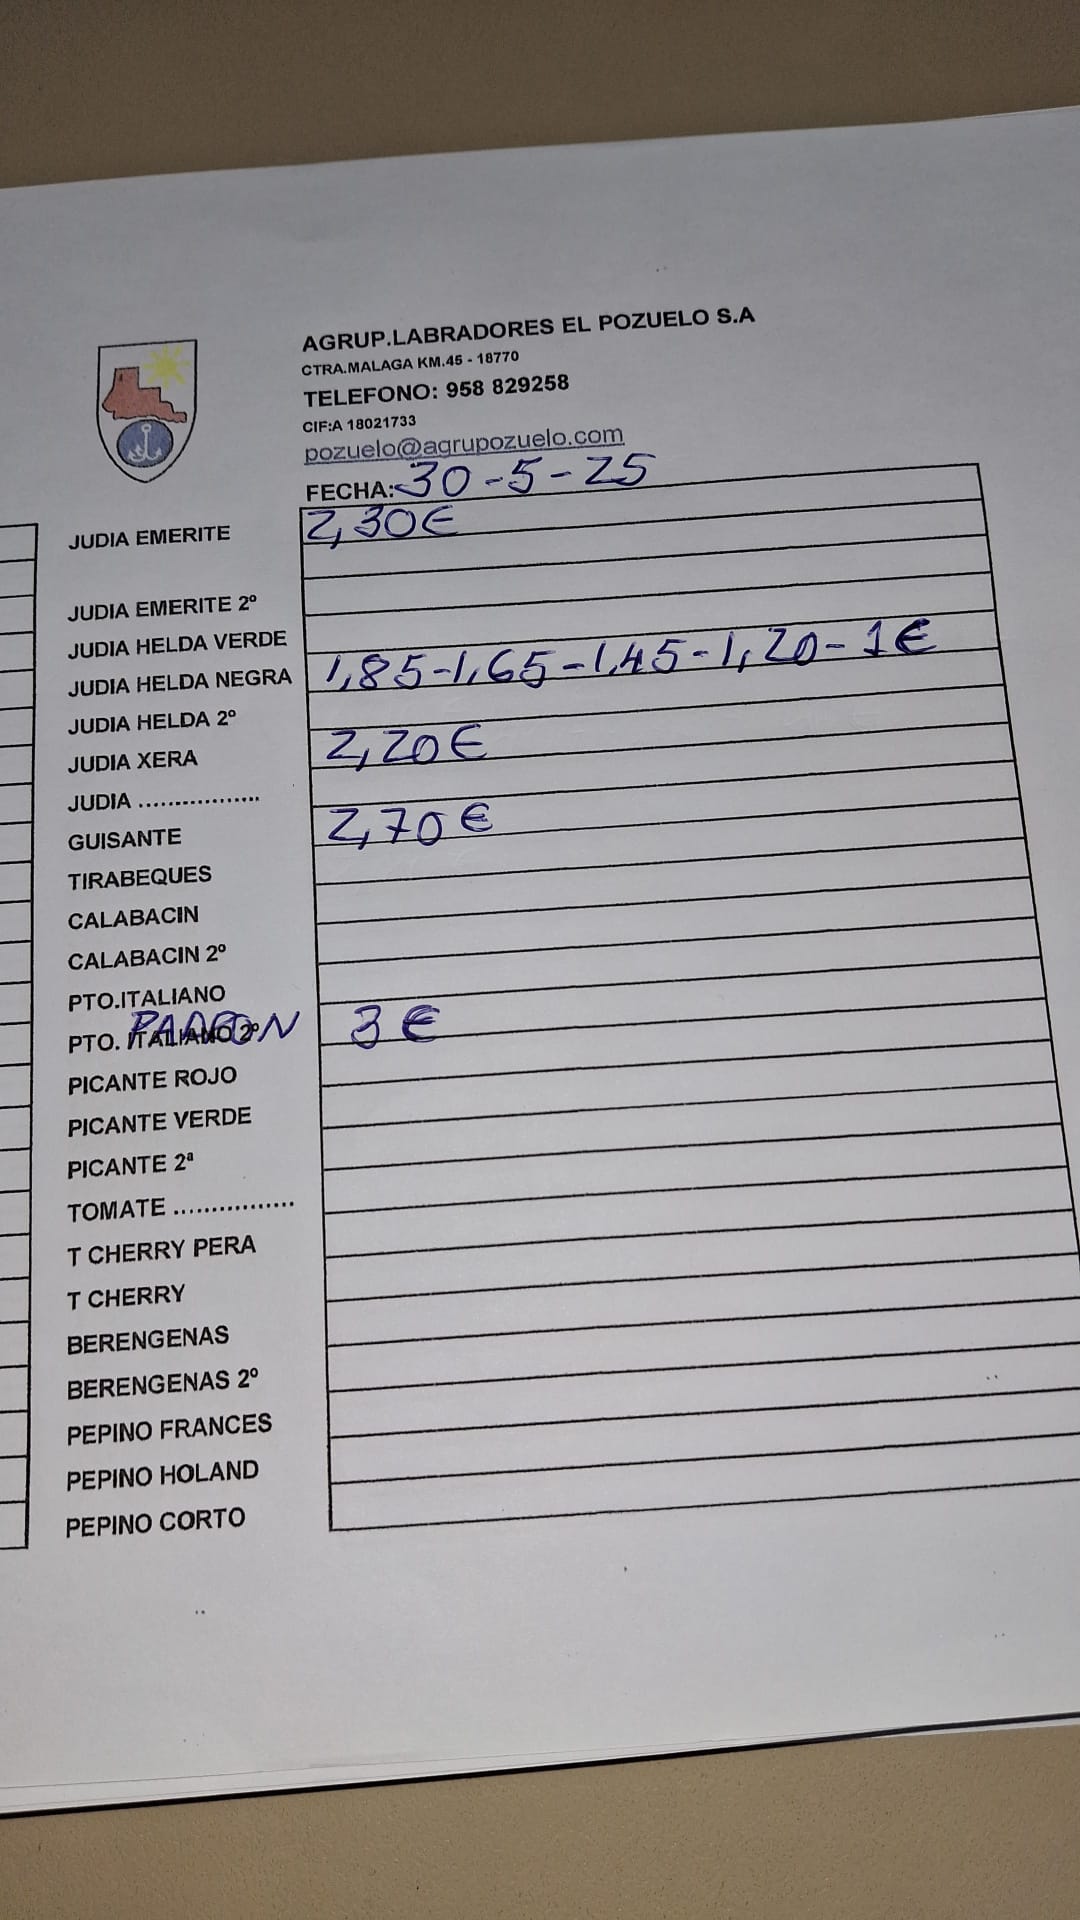 AGRUP.LABRADORES EL POZUELO S.A
CTRA.MALAGA KM.45 - 18770
TELEFONO: 958 829258
CIF:A 18021733
pozuelo@agrupozuelo.com
FECHA: 30-5-25
JUDIA EMERITE 2,30€
JUDIA EMERITE 2º
JUDIA HELDA VERDE
JUDIA HELDA NEGRA 1,85-1,65-1,45-1,20-1€
JUDIA HELDA 2º
JUDIA XERA 2,20€
JUDIA .................
GUISANTE 2,70€
TIRABEQUES
CALABACIN
CALABACIN 2º
PTO.ITALIANO
PTO. ITALIANO 2º PADRON 3€
PICANTE ROJO
PICANTE VERDE
PICANTE 2ª
TOMATE ................
T CHERRY PERA
T CHERRY
BERENGENAS
BERENGENAS 2º
PEPINO FRANCES
PEPINO HOLAND
PEPINO CORTO